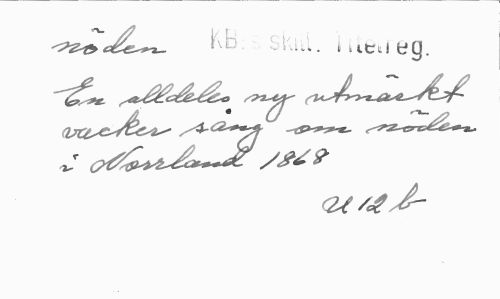 nöden KB:s skill. Titelreg.
En alldeles ny utmärkt
vacker sång om nöden
i Norrland 1868
U 12 b